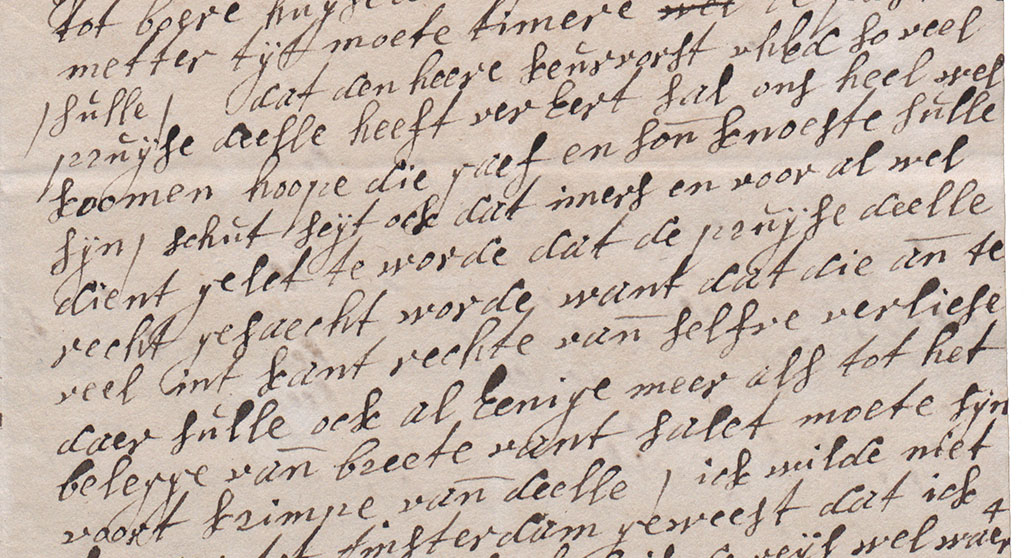 tot boere huyse
metter tyt moete timere wel de
sulle / dat den heere keurvorst vhed so veel
pruyse deelle heeft ver eert sal ons heel wel
koomen hoope die gaef en son knoeste sulle
syn / schut seyt ock dat imers en voor al wel
dient gelet te worde dat de pruyse deelle
recht gesaecht worde want dat die an te
veel int kant rechte van selfre verliese
daer sulle ock al eenige meer als tot het
belegge van breete vant salet moete syn
voort krimpe van deelle / ick wilde niet
tot Amsterdam geweest dat ick 4
reys wel waer